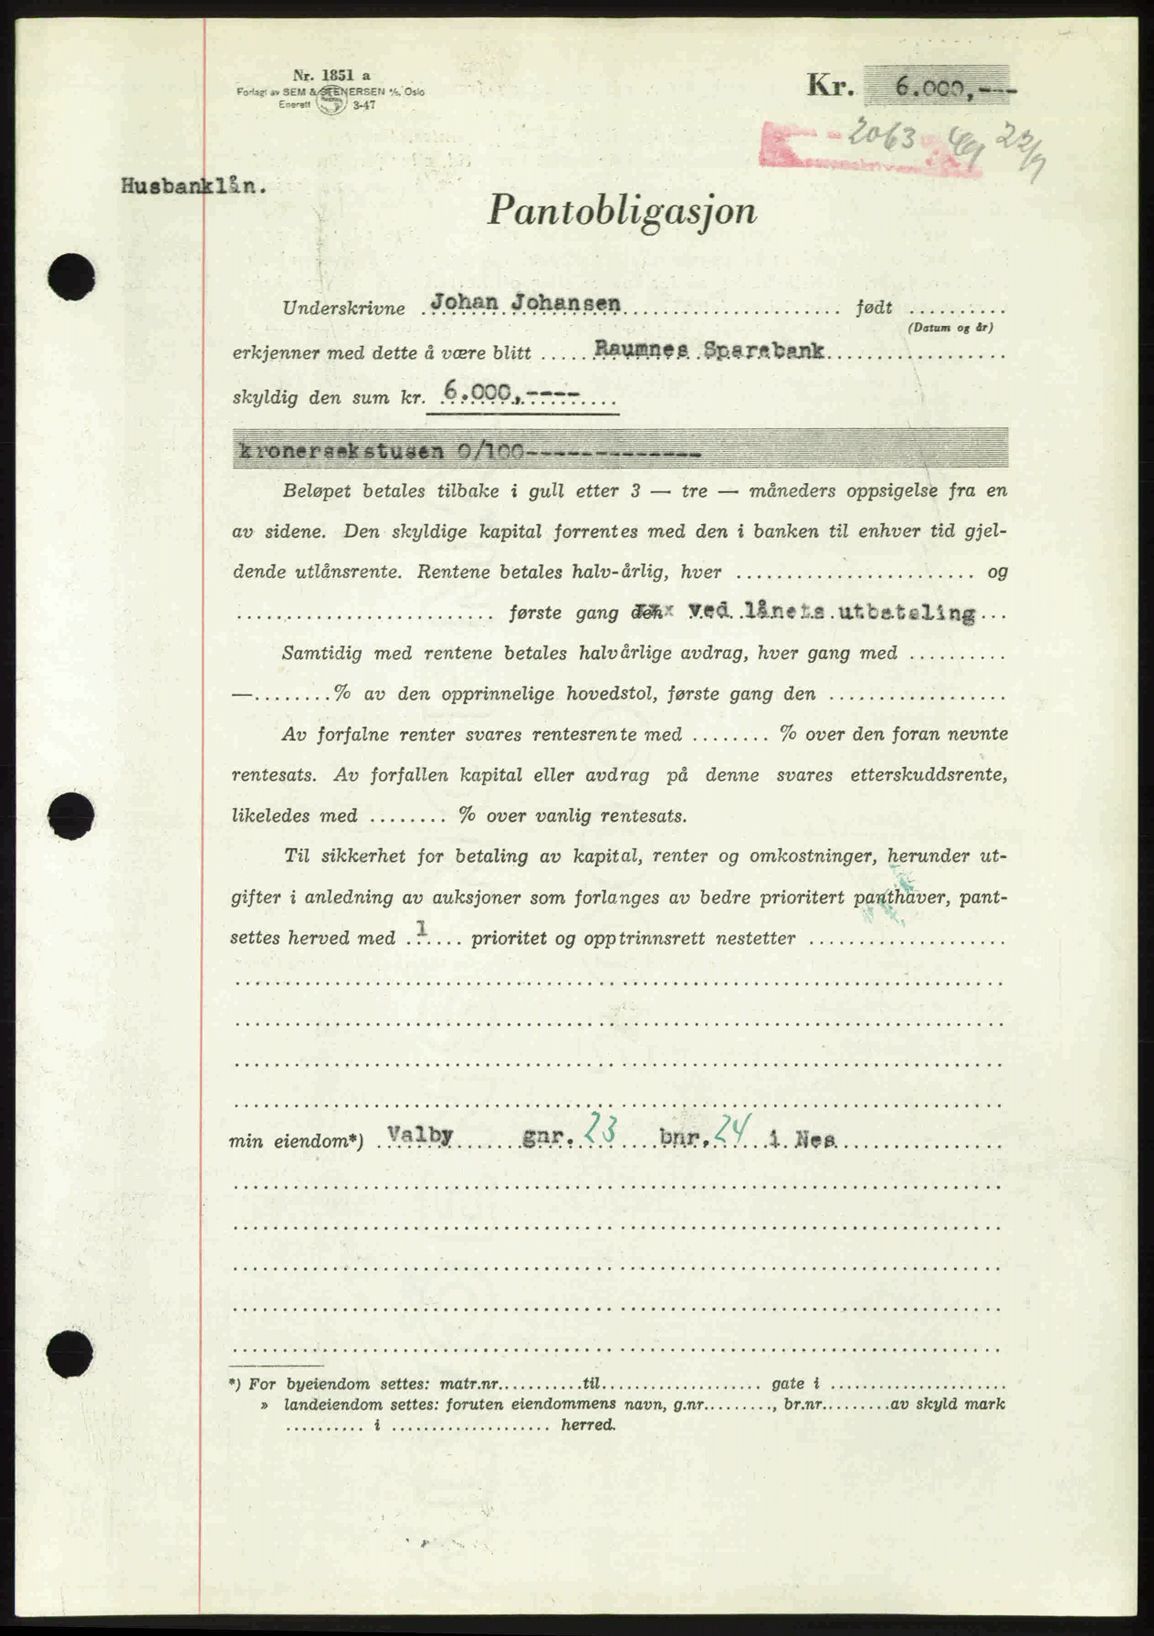 Nr. 1851 a
Forlagt av SEM & STENERSEN A/S, Oslo
Enerett 3-47
Kr. 6.000,---
2063 49 22/9
Husbanklån.
Pantobligasjon
Underskrivne Johan Johansen født ..........
(Datum og år)
erkjenner med dette å være blitt Raumnes Sparebank
skyldig den sum kr. 6.000,----
kronersekstusen 0/100--------------
Beløpet betales tilbake i gull etter 3 — tre — måneders oppsigelse fra en
av sidene. Den skyldige kapital forrentes med den i banken til enhver tid gjel-
dende utlånsrente. Rentene betales halv-årlig, hver ........................ og
.......................... første gang den ved lånets utbetaling ...
Samtidig med rentene betales halvårlige avdrag, hver gang med ..........
—........% av den opprinnelige hovedstol, første gang den ..................
Av forfalne renter svares rentesrente med ........ % over den foran nevnte
rentesats. Av forfallen kapital eller avdrag på denne svares etterskuddsrente,
likeledes med ........ % over vanlig rentesats.
Til sikkerhet for betaling av kapital, renter og omkostninger, herunder ut-
gifter i anledning av auksjoner som forlanges av bedre prioritert panthaver, pant-
settes herved med 1 prioritet og opptrinnsrett nestetter ....................
min eiendom*) Valby gnr. 23 bnr. 24 i Nes
*) For byeiendom settes: matr.nr...........til.................... gate i ......................
» landeiendom settes: foruten eiendommens navn, g.nr........., br.nr.........av skyld mark
.......... i .................... herred.